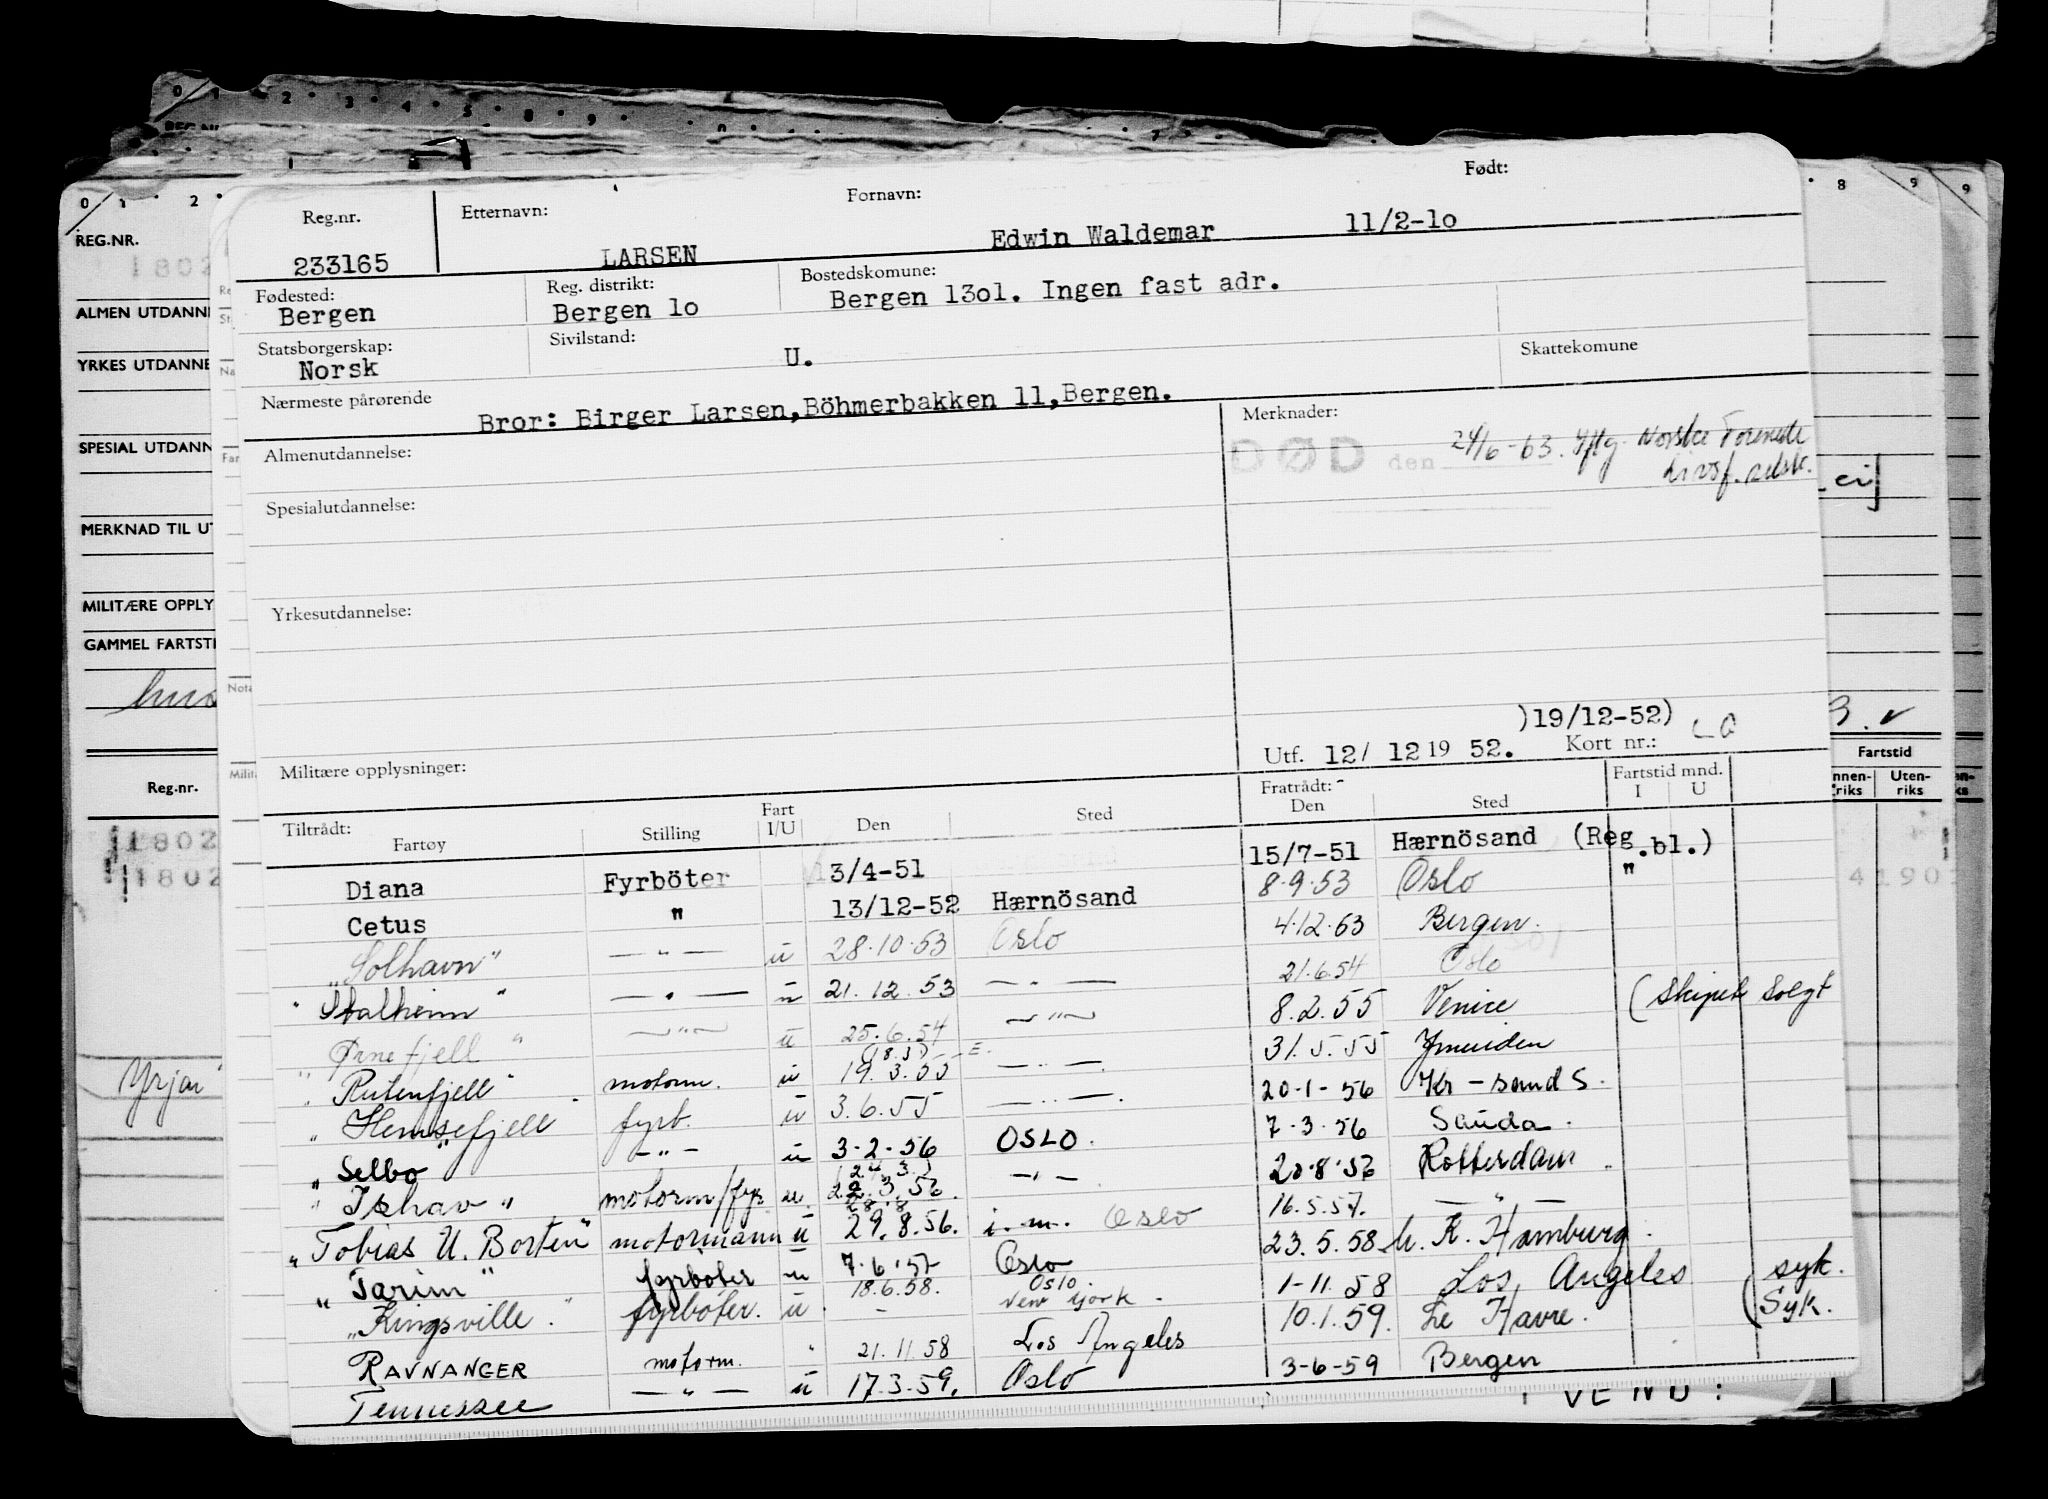 0 1 2 3 4 5 8 9
REG.NR.
1802
ALMEN UTDANN
YRKES UTDANNE
SPESIAL UTDANN
MERKNAD TIL UT
MILITÆRE OPPLY
GAMMEL FARTSTI
Reg.nr.
1802
1802
Yrjar
Reg.nr. Etternavn: Fornavn: Født:
233165 LARSEN Edwin Waldemar 11/2-1o
Fødested: Reg. distrikt: Bostedskomune:
Bergen Bergen 1o Bergen 13o1. Ingen fast adr.
Statsborgerskap: Sivilstand: Skattekomune
Norsk U.
Nærmeste pårørende Bror: Birger Larsen,Böhmerbakken 11,Bergen.
Almenutdannelse: Merknader:
DØD den 24/6-63. Iflg. Norske Forenede
Livsf. selsk.
Spesialutdannelse:
Yrkesutdannelse:
)19/12-52)
Militære opplysninger: Utf. 12/ 12 19 52. Kort nr.:
Tiltrådt: Fratrådt: Fartstid mnd.
Fartøy Stilling Fart I/U Den Sted Den Sted I U
Diana Fyrböter 3/4-51 15/7-51 Hærnösand (Reg.bl.)
Cetus " 13/12-52 Hærnösand 8.9.53 Oslo "
"Solhavn" — " — u 28.10.53 Oslo 4.12.63 Bergen.
"Stalheim" — " — u 21.12.53 — " — 21.6.54 Oslo
"Ørnefjell" — " — u 25.6.54 — " — 8.2.55 Venice (Skipet solgt
"Rutenfjell" motorm. u 19.3.55 — " — 31.5.55 Ymuiden
"Hemsefjell" fyrb. u 3.6.55 — " — 20-1-56 Kr-sand S.
"Selbo" — " — u 3-2-56 OSLO. 7-3-56 Sauda.
"Ishav" motorm/fyr u 22.3.56 — " — 20.8.56 Rotterdam
"Tobias U. Borten" motormann u 29.8.56. i.m. Oslo 16.5.57. — " —
"Tarim" fyrbøter u 7.6.57 Oslo 23.5.58 h.R. Hamburg.
"Kingsville" fyrbøter. u 18.6.58. Oslo New York. 1-11.58 Los Angeles (syk.
RAVNANGER motorm. " 21.11.58 Los Angeles 10.1.59. Le Havre. (Syk.
Tennessee — " — u 17.3.59. Oslo 3-6-59 Bergen
8 9 9
Fartstid
nnen-riks Uten-riks
4190
VEND: